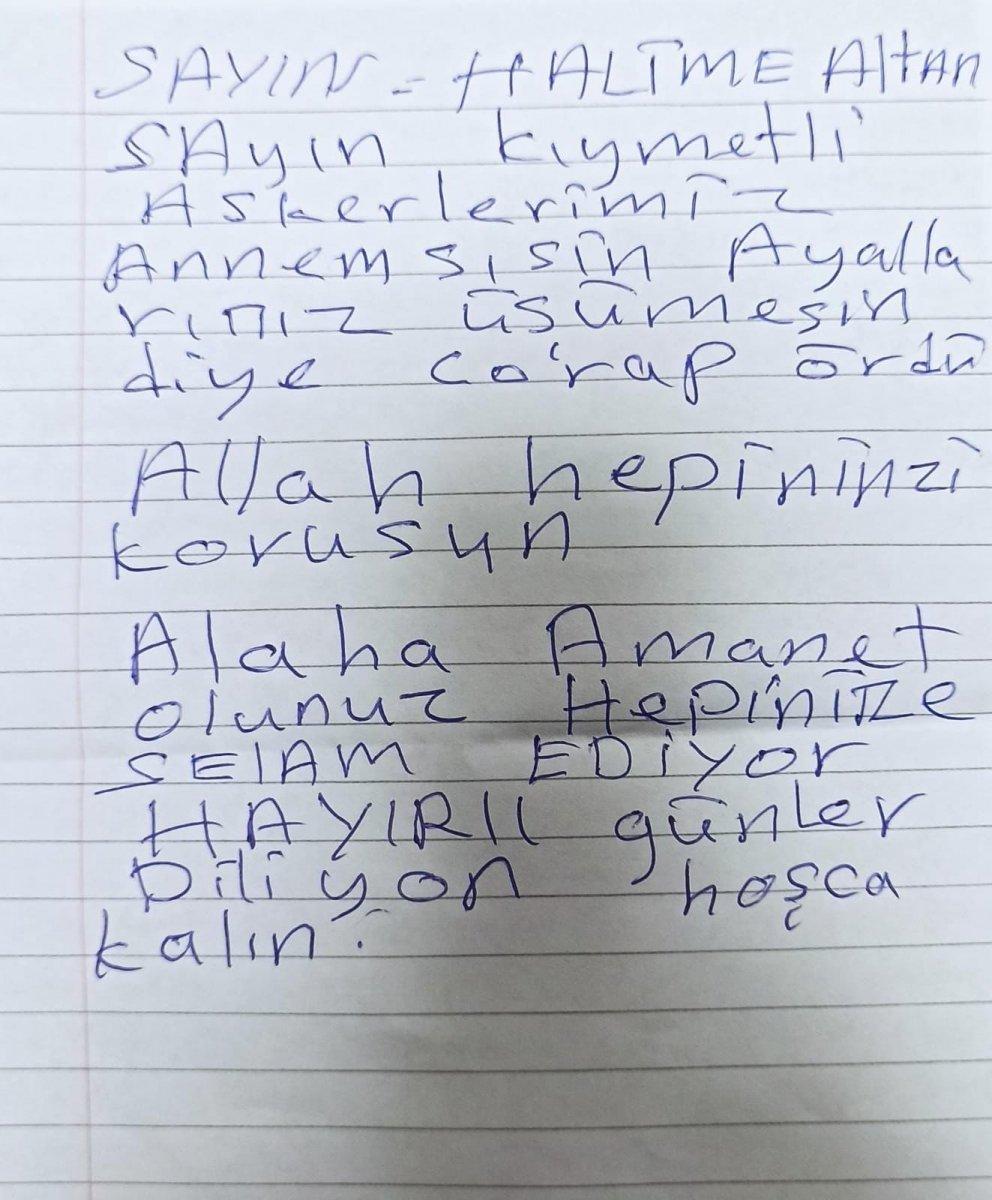 SAYIN - HALİME AltAn
SAyın kıymetli
Askerlerimiz
Annem sısin Ayalla
rınız üsümesın
diye corap ördü
Allah hepininzi
korusun
Alaha Amanet
olunuz Hepinize
SElAM EDİyor
HAYIRlı günler
Diliyon hoşca
kalın.